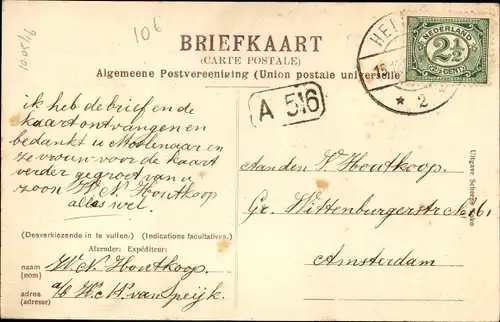 10.05/16
10€
BRIEFKAART
(CARTE POSTALE)
Algemeene Postvereeniging (Union postale universelle)
NEDERLAND
2½
(2½ CENT)
HEL
15
* 2
A 516
ik heb de brief en de
kaart ontvangen en
bedankt u Moolenaar en
ze vrouw voor de kaart
verder gegroet van u
zoon W. N. Houtkoop
alles wel.
Aan den V. Houtkoop.
Gr. Wittenburgerstr. No 61
Amsterdam
Uitgave
(Desverkiezende in te vullen.) (Indications facultatives.)
Afzender: Expéditeur:
naam (nom) W. N. Houtkoop.
adres (adresse) a/b H. M. van Speijk.